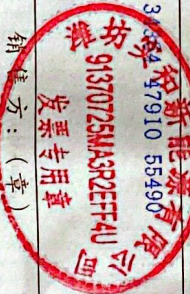 47910 55490
潍坊 和新能源有限公司
91370725MA3R2EFF4U
发票专用章
销售方：（章）